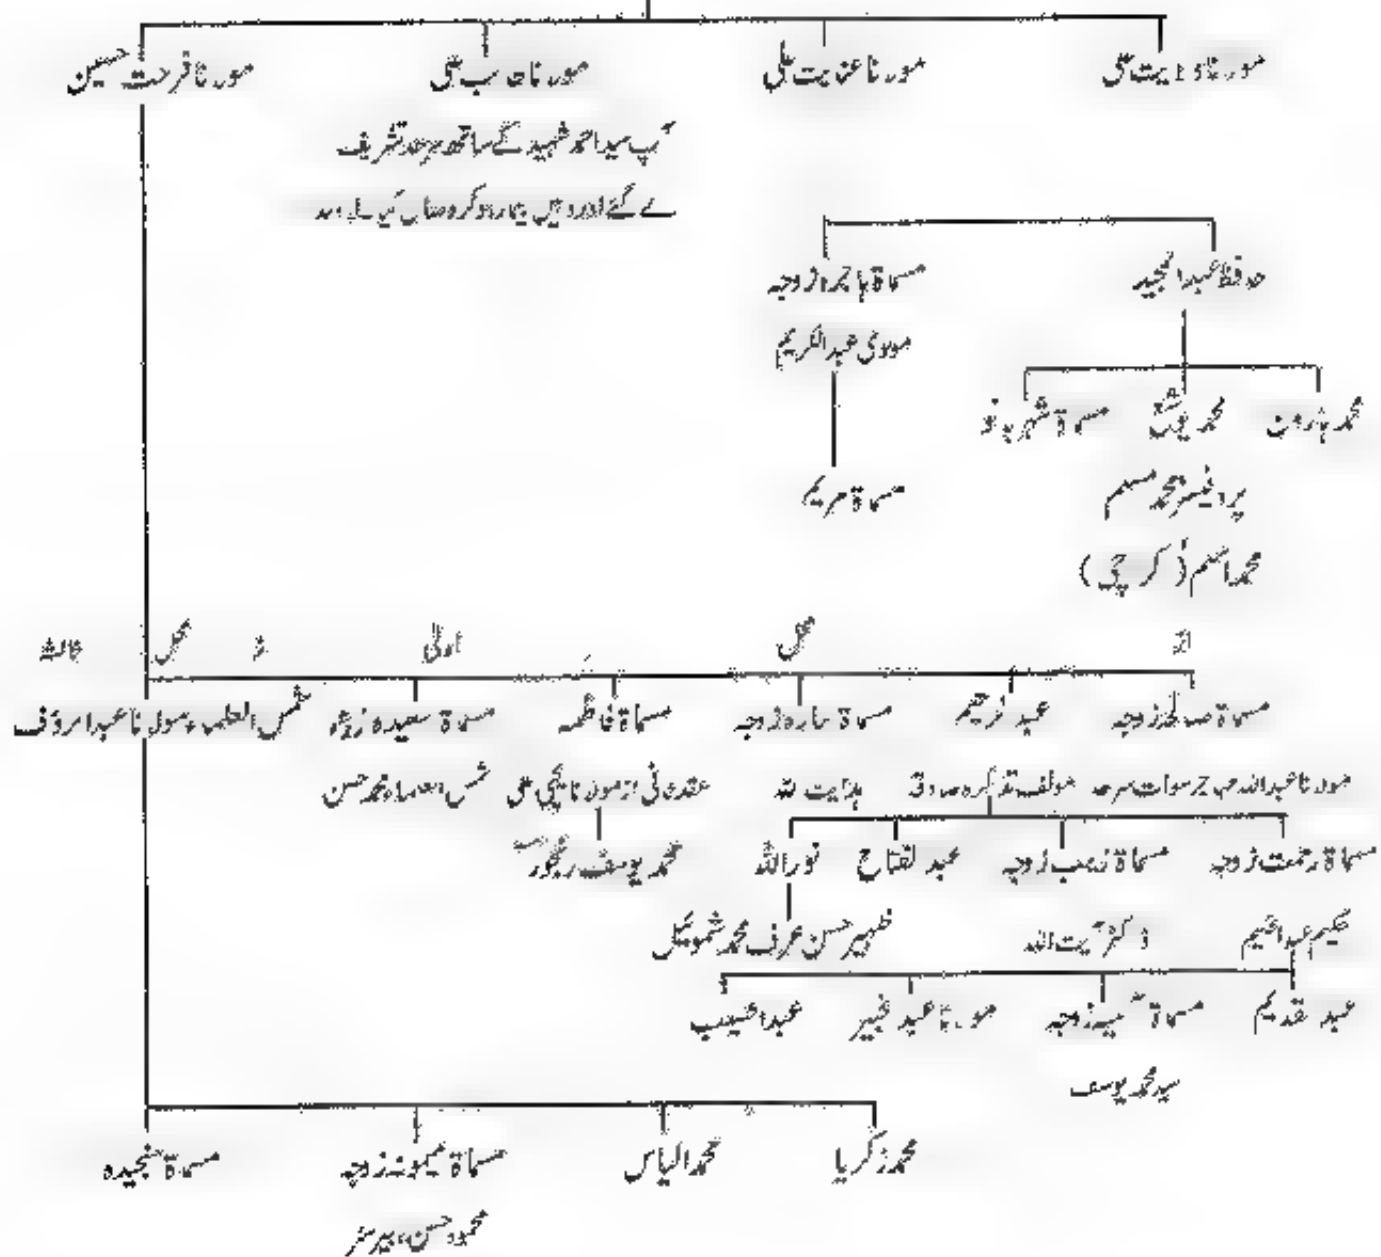 مولانا ولایت علی
مولانا عنایت علی
مولانا طالب علی
مولانا فرحت حسین
آپ سید احمد شہید کے ساتھ سرحد تشریف
لے گئے اور وہیں بیمار ہو کر وصال کیا۔
حافظ عبدالمجید
مسماۃ ہاجرہ زوجہ
مولوی عبدالکریم
محمد ہارون
محمد یوشع
مسماۃ شہر بانو
مسماۃ مریم
پروفیسر محمد مسلم
محمد اسلم (کراچی)
از
محل
اولیٰ
از
محل
ثالثہ
مسماۃ صالحہ زوجہ
عبدالرحیم
مسماۃ سارہ زوجہ
مسماۃ فاطمہ
مسماۃ سعیدہ زوجہ
شمس العلماء مولانا عبدالرؤف
مولانا عبداللہ مہاجر سوات سرحد
مولف تذکرہ صادقہ
ہدایت اللہ
عقد ثانی از مولانا یحییٰ علی
شمس العلماء محمد حسن
مسماۃ رحمت زوجہ
مسماۃ زینب زوجہ
عبدالفتاح
نور اللہ
محمد یوسف رنجور
حکیم عبدالعلیم
ڈاکٹر آیت اللہ
ظہیر حسن عرف محمد شموئیل
عبدالقدیم
مسماۃ زوجہ
مولانا عبدالخبیر
عبدالحسیب
سید محمد یوسف
محمد زکریا
محمد الیاس
مسماۃ میمونہ زوجہ
مسماۃ سنجیدہ
محمود حسن، بیرسٹر